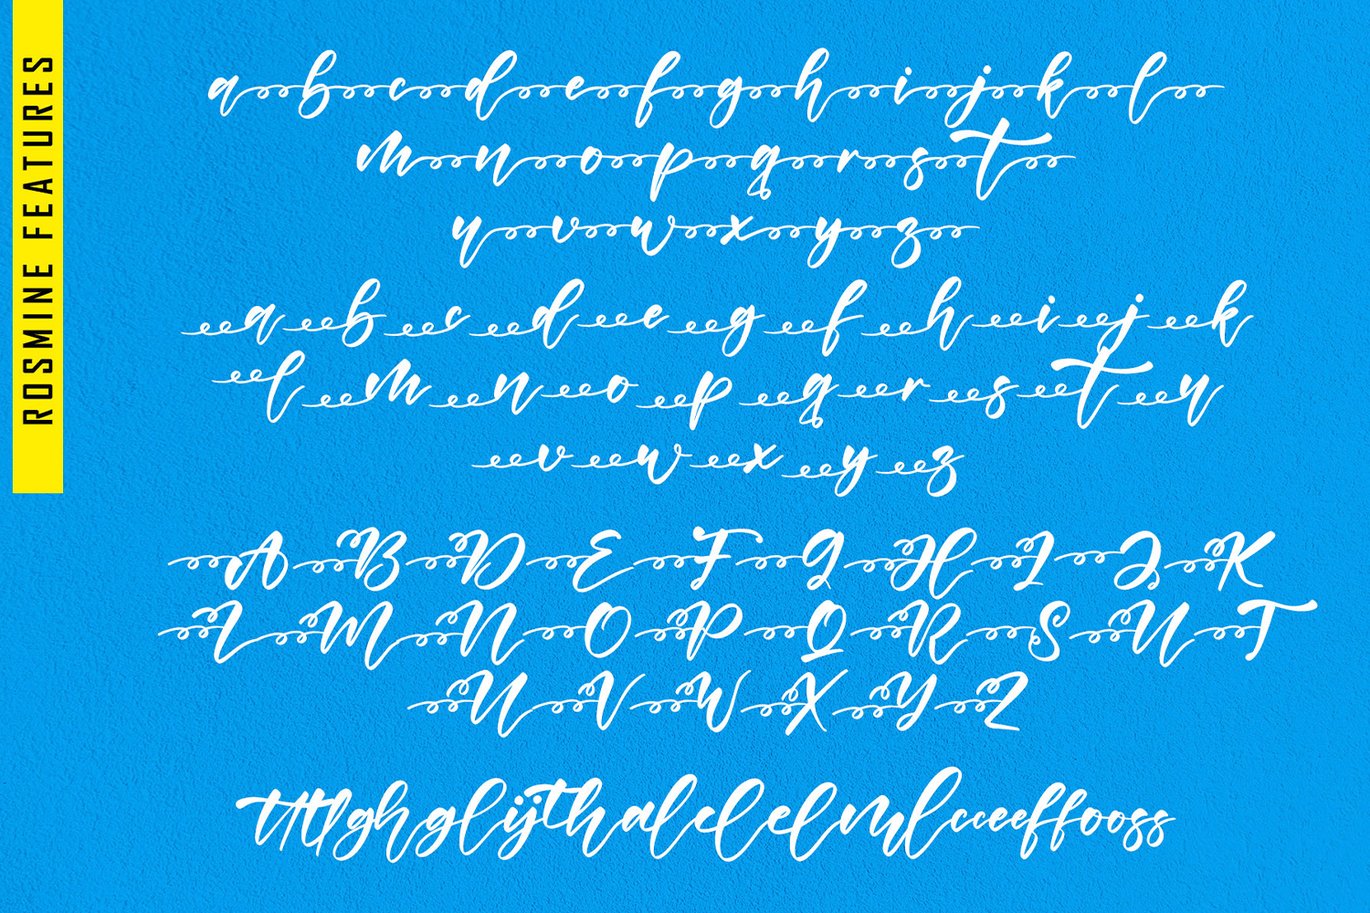 ROSMINE FEATURES
a b c d e f g h i j k l
m n o p q r s t
u v w x y z
a b c d e g f h i j k
l m n o p q r s t u
v w x y z
A B D E F G H I J K
L M N O P Q R S U T
U V W X Y Z
tttlghglijthalelelmlcceeffooss